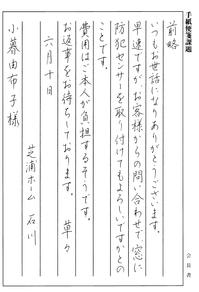 手紙便箋課題
前略
いつもお世話になりありがとうございます。
早速ですが、お客様からの問い合わせで、窓に
防犯センサーを取り付けてもよろしいですかとの
ことです。
費用はご本人が負担するそうです。
お返事をお待ちしております。 草々
六月十日
芝浦ホーム 石川
小暮由布子様
会長書